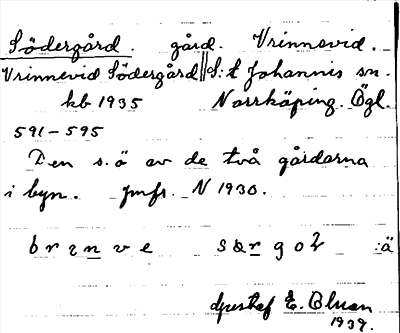 Södergård. gård. Vrinnevid.
Vrinnevid Södergård || S:t Johannis sn.
kb 1935 Norrköping. Ögl.
591-595
Den s. ö av de två gårdarna
i byn. jmfr. N 1930.
:ä
Gustaf E. Bluan
1939.